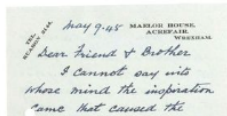 TEL.
RUABON 214.
May 9-45
MAELOR HOUSE,
ACREFAIR,
WREXHAM.
Dear Friend & Brother
I cannot say into
whose mind the inspiration
came that caused the